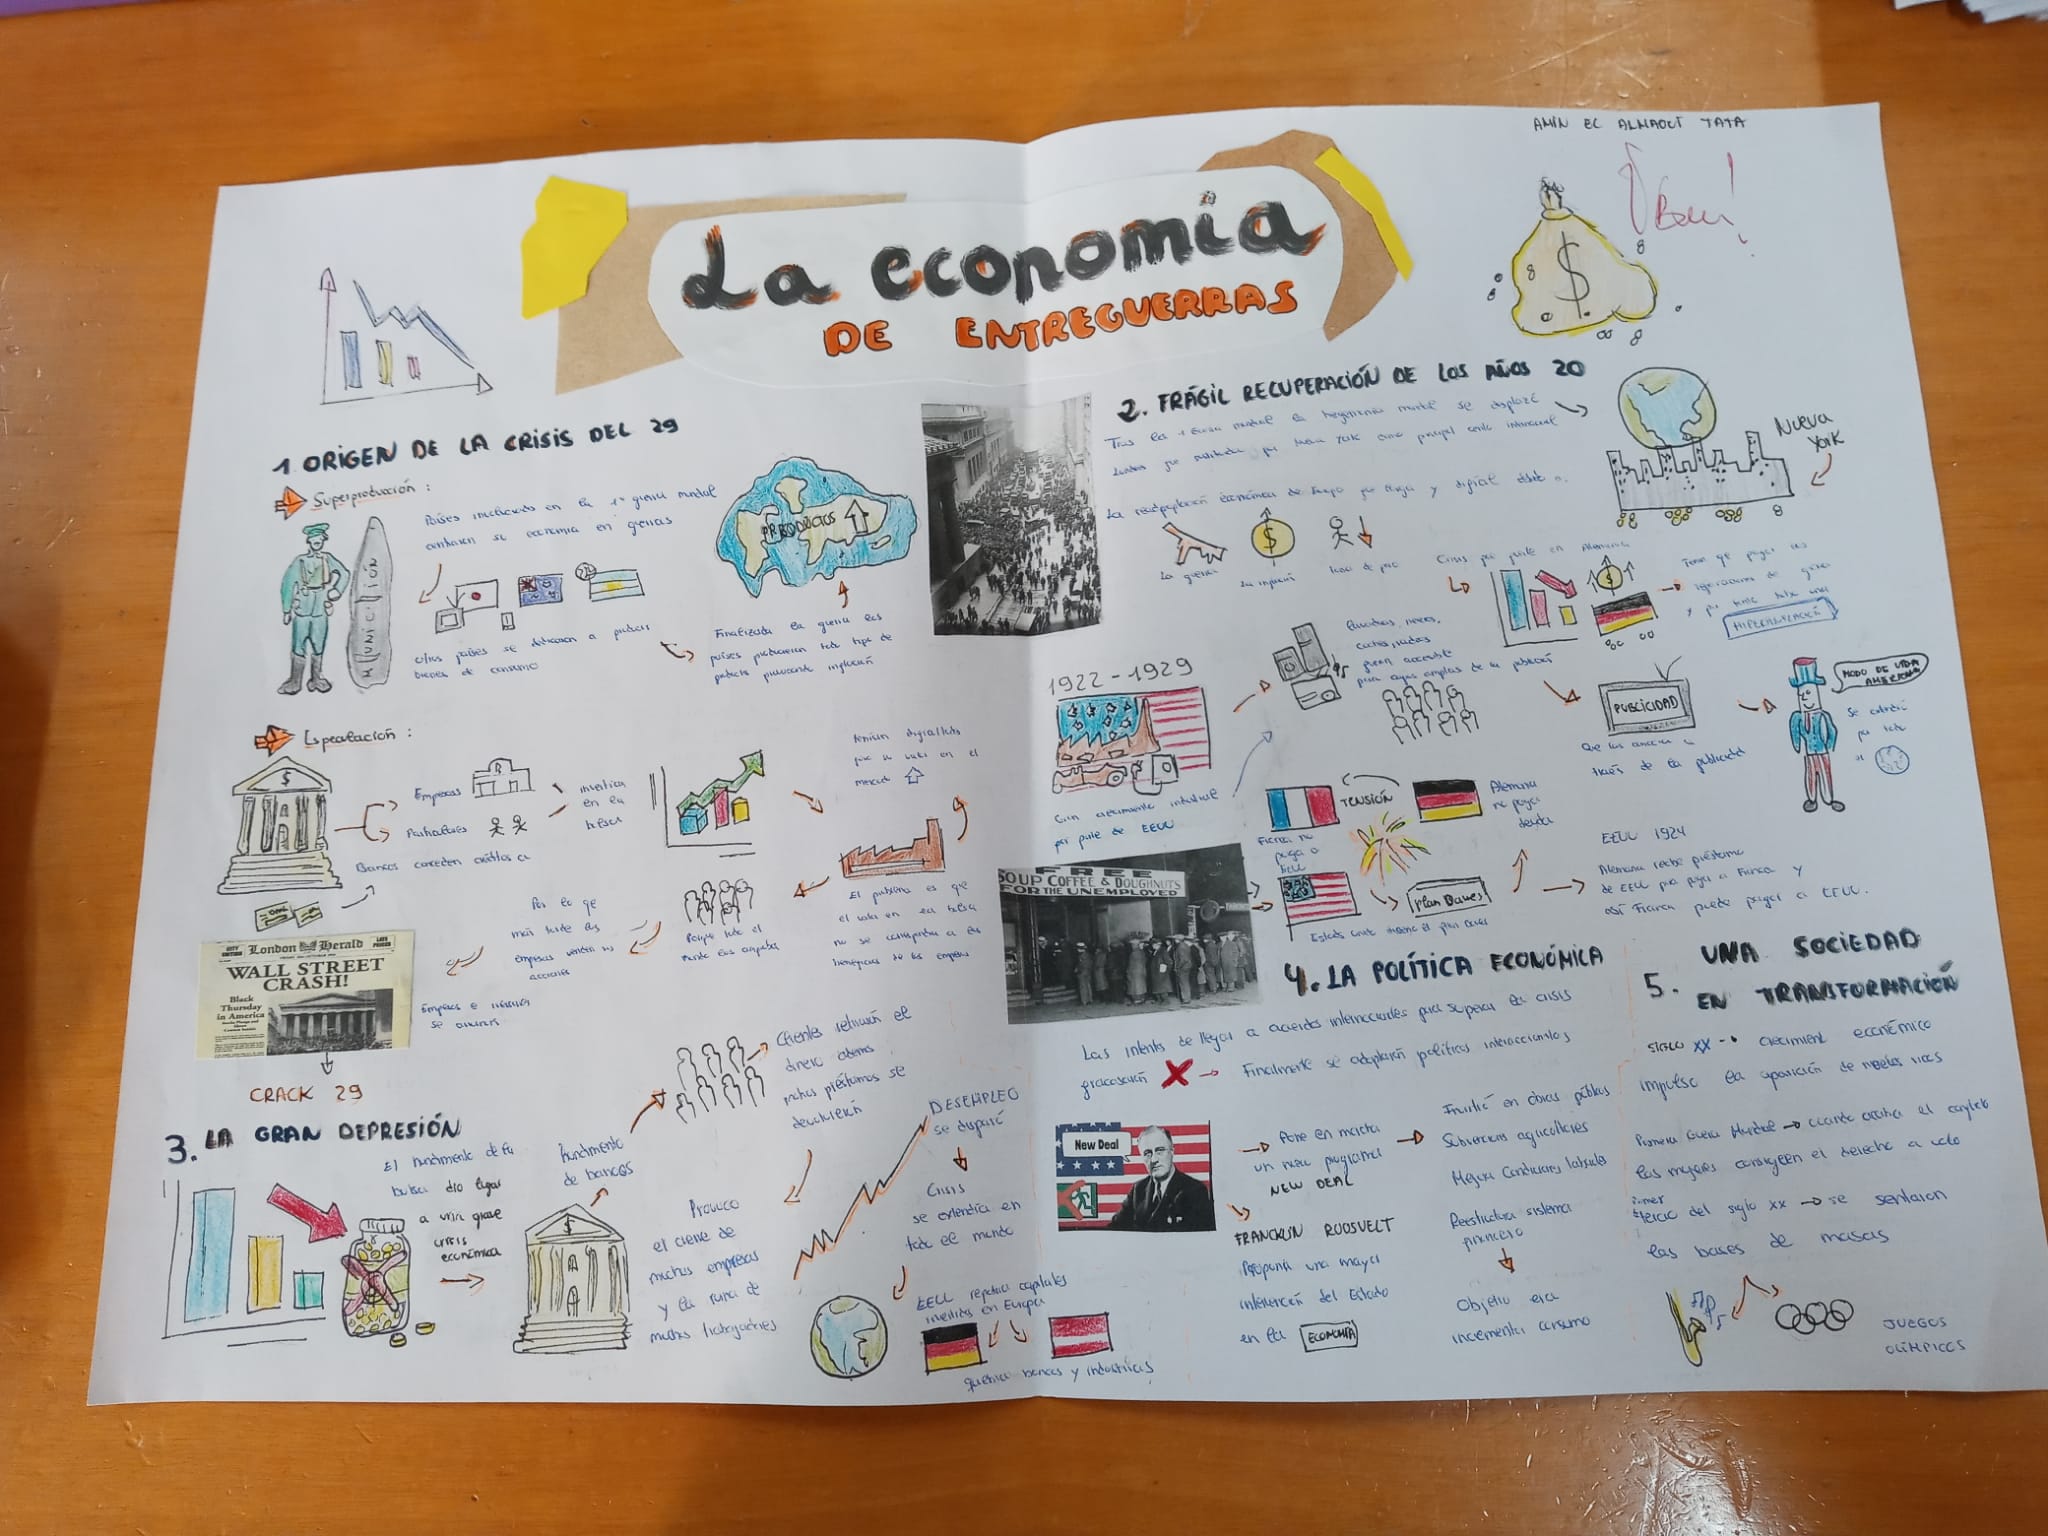 AMIN EL
La economía
DE ENTREGUERRAS
$
1. ORIGEN DE LA CRISIS DEL 29
Superproducción:
Países involucrados en la 1ª guerra mundial
centraron su economía en guerras
MUNICIÓN
Otros países se dedicaron a producir
bienes de consumo
PRRODUCTOS
Finalizada la guerra los
países produjeron todo tipo de
producto provocando inflación
Especulación:
$
Empresas
Particulares
invertían
en la
bolsa
Bancos conceden créditos a
mercado
El problema es que
el valor en la bolsa
no se correspondía a los
beneficios de las empresas
Porque todo el
mundo
Por lo que
más tarde las
empresas venden sus
acciones
Empresas e
se arruinan
London Herald
WALL STREET
CRASH!
Black
Thursday
in America
CRACK 29
2. FRÁGIL RECUPERACIÓN DE LOS AÑOS 20
Tras la 1 Guerra mundial la hegemonía mundial se desplazó
Londres fue sustituida por Nueva York como principal centro
NUEVA
YORK
La recuperación económica de Europa fue larga y difícil debido a:
La guerra
$
La inflación
Crisis por parte en Alemania
$
Tenía que pagar las
reparaciones de guerra
y por tanto hubo una
HIPERINFLACIÓN
1922 - 1929
Gran crecimiento industrial
por parte de EEUU
coches, radios
PUBLICIDAD
través de la publicidad
MODO DE VIDA
AMERICANO
Se extendió
por todo
el
TENSIÓN
Francia no
paga a
EEUU
Alemania
no paga
deuda
Plan Dawes
EEUU 1924
Alemania recibe préstamo
de EEUU para pagar a Francia y
así Francia puede pagar a EEUU.
FREE
SOUP COFFEE & DOUGHNUTS
FOR THE UNEMPLOYED
3. LA GRAN DEPRESIÓN
El hundimiento de la
bolsa dio lugar
a una grave
crisis
económica
$
Hundimiento
de bancos
Clientes retiraron el
dinero además
muchos préstamos se
devolvieron
Provocó
el cierre de
muchas empresas
y la ruina de
muchos trabajadores
DESEMPLEO
se disparó
Crisis
se extendía en
todo el mundo
EEUU repatria capitales
invertidos en Europa
quiebra bancos y industrias
4. LA POLÍTICA ECONÓMICA
Las intentos de llegar a acuerdos internacionales para superar la crisis
fracasarán
Finalmente se adoptarán políticas
New Deal
Pone en marcha
un nuevo programa
NEW DEAL
FRANCKLIN ROOSVELT
Proponía una mayor
intervención del Estado
en la ECONOMÍA
Invirtió en obras públicas
Subvenciones agricultores
Mejorar Condiciones laborales
Reestructura sistema
financiero
Objetivo era
incrementar consumo
5. UNA SOCIEDAD
EN TRANSFORMACIÓN
SIGLO XX crecimiento económico
impulso la aparición de nuevos ricos
Primera Guerra Mundial cuando acaba el conflicto
las mujeres consiguen el derecho a voto
Primer
tercio del siglo XX se sentaron
las bases de masas
JUEGOS
OLÍMPICOS